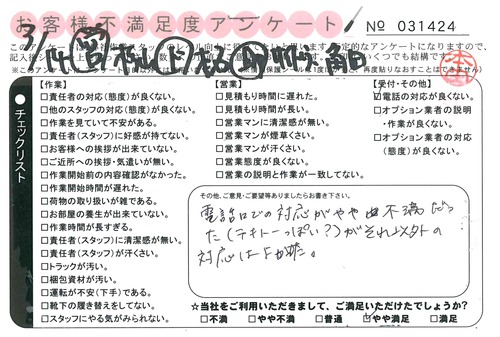 お客様不満足度アンケート
No 031424
【作業】
□責任者の対応(態度)が良くない。
□他のスタッフの対応(態度)が良くない。
□作業を見ていて不安がある。
□責任者(スタッフ)に好感が持てない。
□お客様への挨拶が出来ていない。
□ご近所への挨拶・気遣いが無い。
□作業開始前の内容確認がなかった。
□作業開始時間が遅れた。
□荷物の取り扱いが雑である。
□お部屋の養生が出来ていない。
□作業時間が長すぎる。
□責任者(スタッフ)に清潔感が無い。
□責任者(スタッフ)が汗くさい。
□トラックが汚い。
□梱包資材が汚い。
□運転が不安(下手)である。
□靴下の履き替えをしてない。
□スタッフにやる気がみられない。
【営業】
□見積もり時間に遅れた。
□見積もり時間が長い。
□営業マンに清潔感が無い。
□営業マンが煙草くさい。
□営業マンが汗くさい。
□営業態度が良くない。
□営業の説明と作業が一致してない。
【受付・その他】
☑電話の対応が良くない。
□オプション業者の説明
・作業が良くない。
□オプション業者の対応
(態度)が良くない。
チェックリスト
その他、ご意見・ご要望等ありましたらお書き下さい。
電話口での対応がやや不満だっ
た(テキトーっぽい?)がそれ以外の
対応は良かった。
☆当社をご利用いただきまして、ご満足いただけたでしょうか?
□不満 □やや不満 □普通 ☑やや満足 □満足